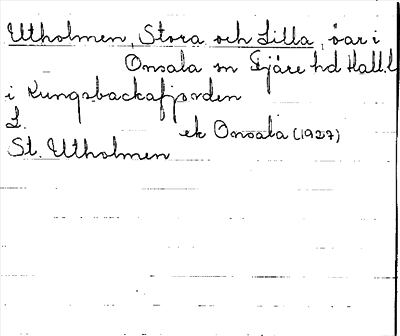 Utholmen, Stora och Lilla, öar i
Onsala sn Fjäre hd Hall.l
i Kungsbackafjorden
L.
ek Onsala (1927)
St. Utholmen